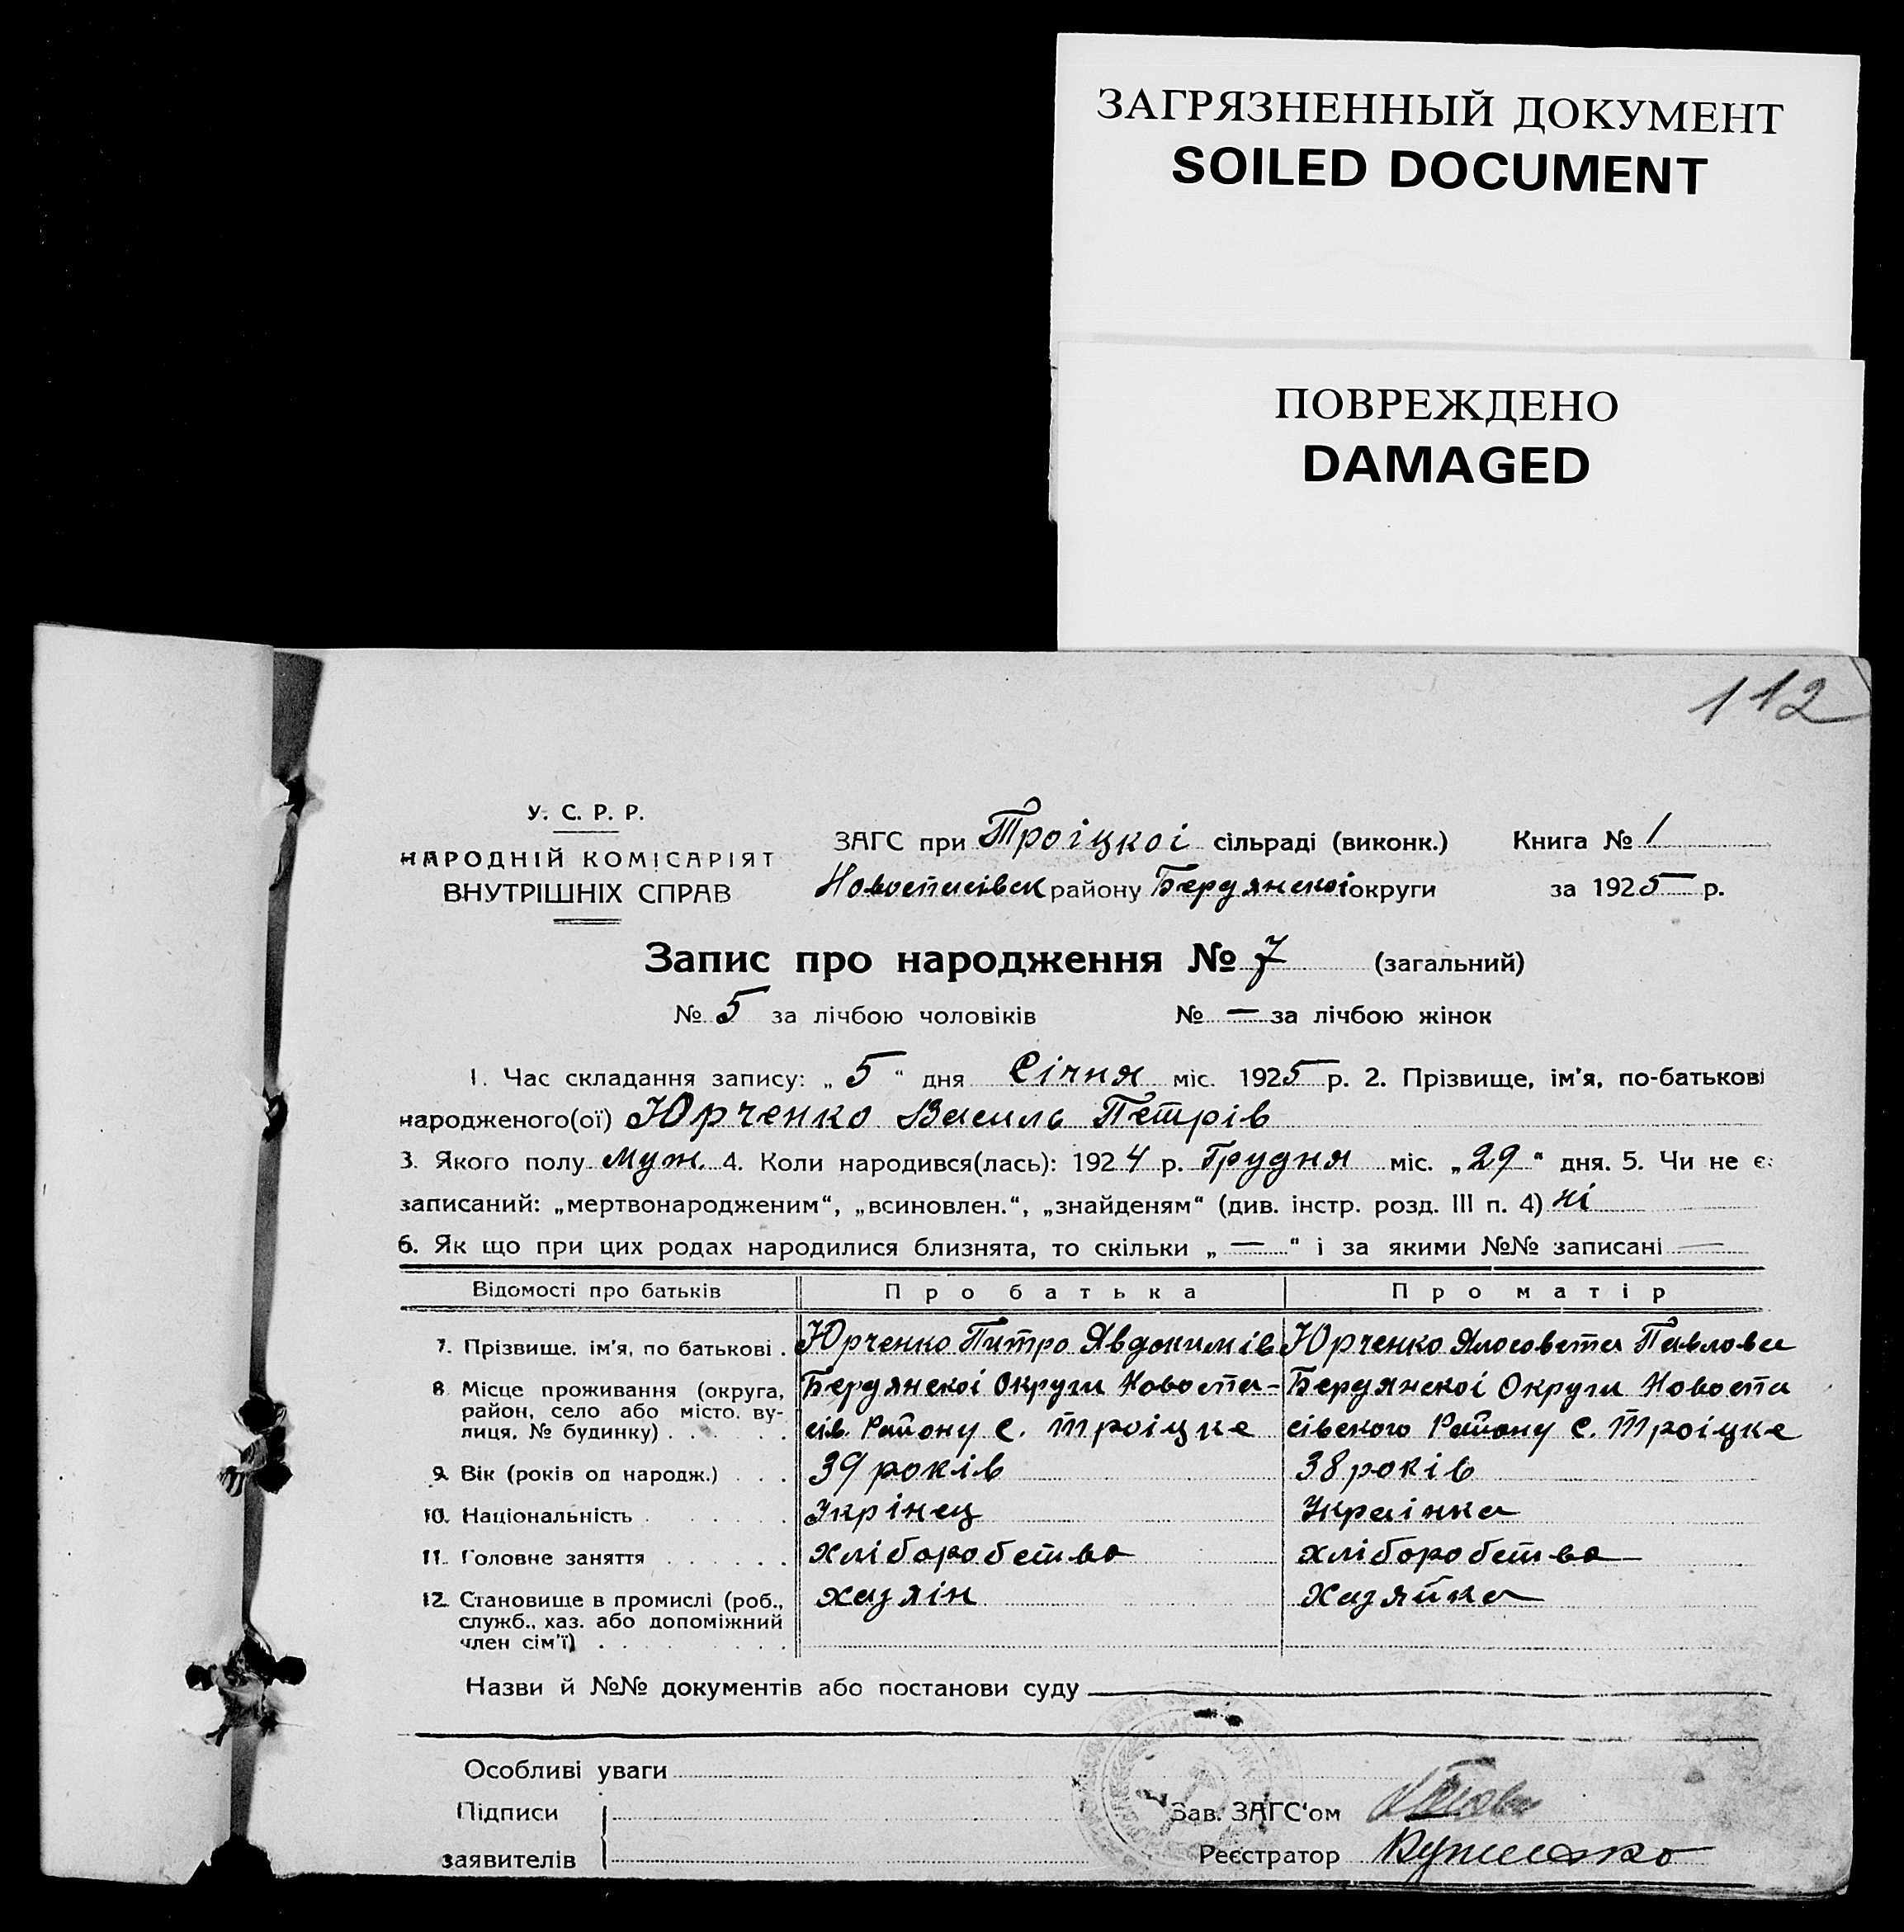 ЗАГРЯЗНЕННЫЙ ДОКУМЕНТ
SOILED DOCUMENT
ПОВРЕЖДЕНО
DAMAGED
112
У. С. Р. Р.
НАРОДНІЙ КОМІСАРІЯТ
ВНУТРІШНІХ СПРАВ
ЗАГС при Троіцкоі сільраді (виконк.) Книга № 1
Новоспасівск району Бердянскоі округи за 1925 р.
Запис про народження № 7 (загальний)
№ 5 за лічбою чоловіків № — за лічбою жінок
1. Час складання запису: „ 5 “ дня Січня міс. 1925 р. 2. Прізвище, ім'я, по-батькові
народженого(ої) Юрченко Василь Петрів
3. Якого полу муж. 4. Коли народився(лась): 1924 р. Грудня міс. „ 29 “ дня. 5. Чи не є
записаний: „мертвонародженим“, „всиновлен.“, „знайденям“ (див. інстр. розд. III п. 4) ні
6. Як що при цих родах народилися близнята, то скільки „ — “ і за якими №№ записані —
Відомості про батьків Про батька Про матір
7. Прізвище, ім'я, по батькові . Юрченко Питро Явдокимів Юрченко Ялосовета Павлова
8. Місце проживання (округа, Бердянскоі Округи Новоспа- Бердянскоі Округи Новоспа
район, село або місто, ву-
лиця, № будинку) . . . . . сів. Району с. Троіцке сівского Району с. Троіцке
9. Вік (років од народж.) . . . 39 років 38 років
10. Національність . . . . . . Укрінец Украінка
11. Головне заняття . . . . . . хліборобство хліборобство
12. Становище в промислі (роб., хазяін Хазяйка
служб., хаз. або допоміжний
член сім'ї) . . . . . . . .
Назви й №№ документів або постанови суду
Особливі уваги
Підписи Зав. ЗАГС'ом
заявителів Реєстратор